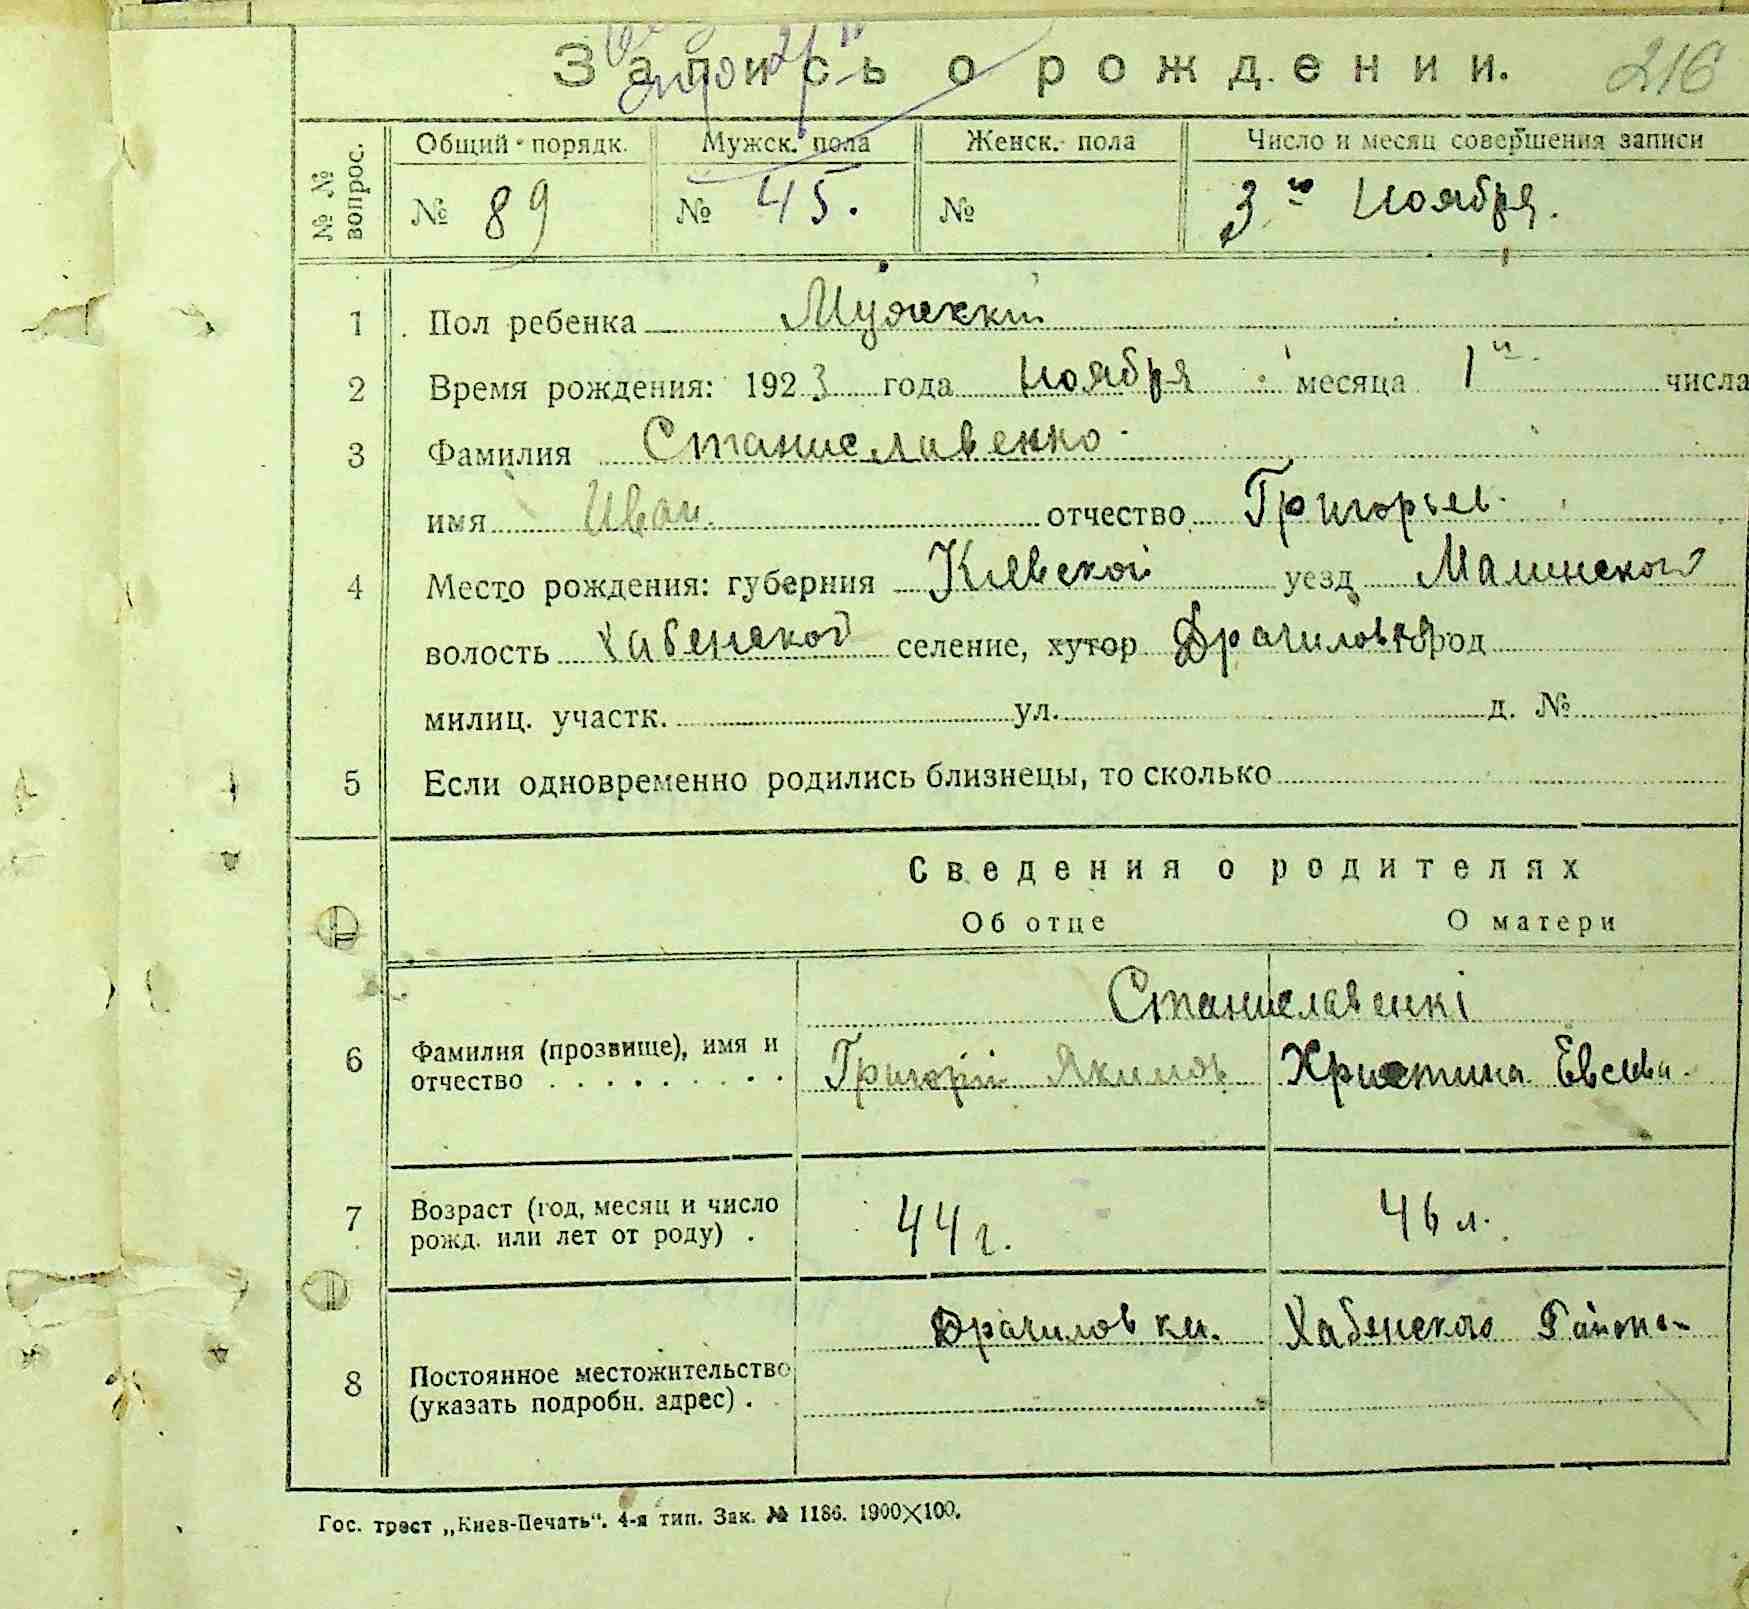 Запись о рождении. 216
№ № вопрос. Общий порядк. Мужск. пола Женск. пола Число и месяц совершения записи
№ 89 № 45. № 3го Ноября.
1 Пол ребенка Мужскій
2 Время рождения: 1923 года Ноября месяца 1го числа
3 Фамилия Станиславенко
имя Иван. отчество Григорьев.
4 Место рождения: губерния Киевской уезд Малинского
волость Хабенской селение, хутор Драчиловка город
милиц. участк. ул. д. №
5 Если одновременно родились близнецы, то сколько
Сведения о родителях
Об отце О матери
Станиславенкі
6 Фамилия (прозвище), имя и отчество . . . . . . . . . Григорій Якимов Христина Евсеева
7 Возраст (год, месяц и число рожд. или лет от роду) . 44 г. 46 л.
8 Постоянное местожительство (указать подробн. адрес) . Драчиловки. Хабенского Района
Гос. трест „Киев-Печать“. 4-я тип. Зак. № 1186. 1900×100.